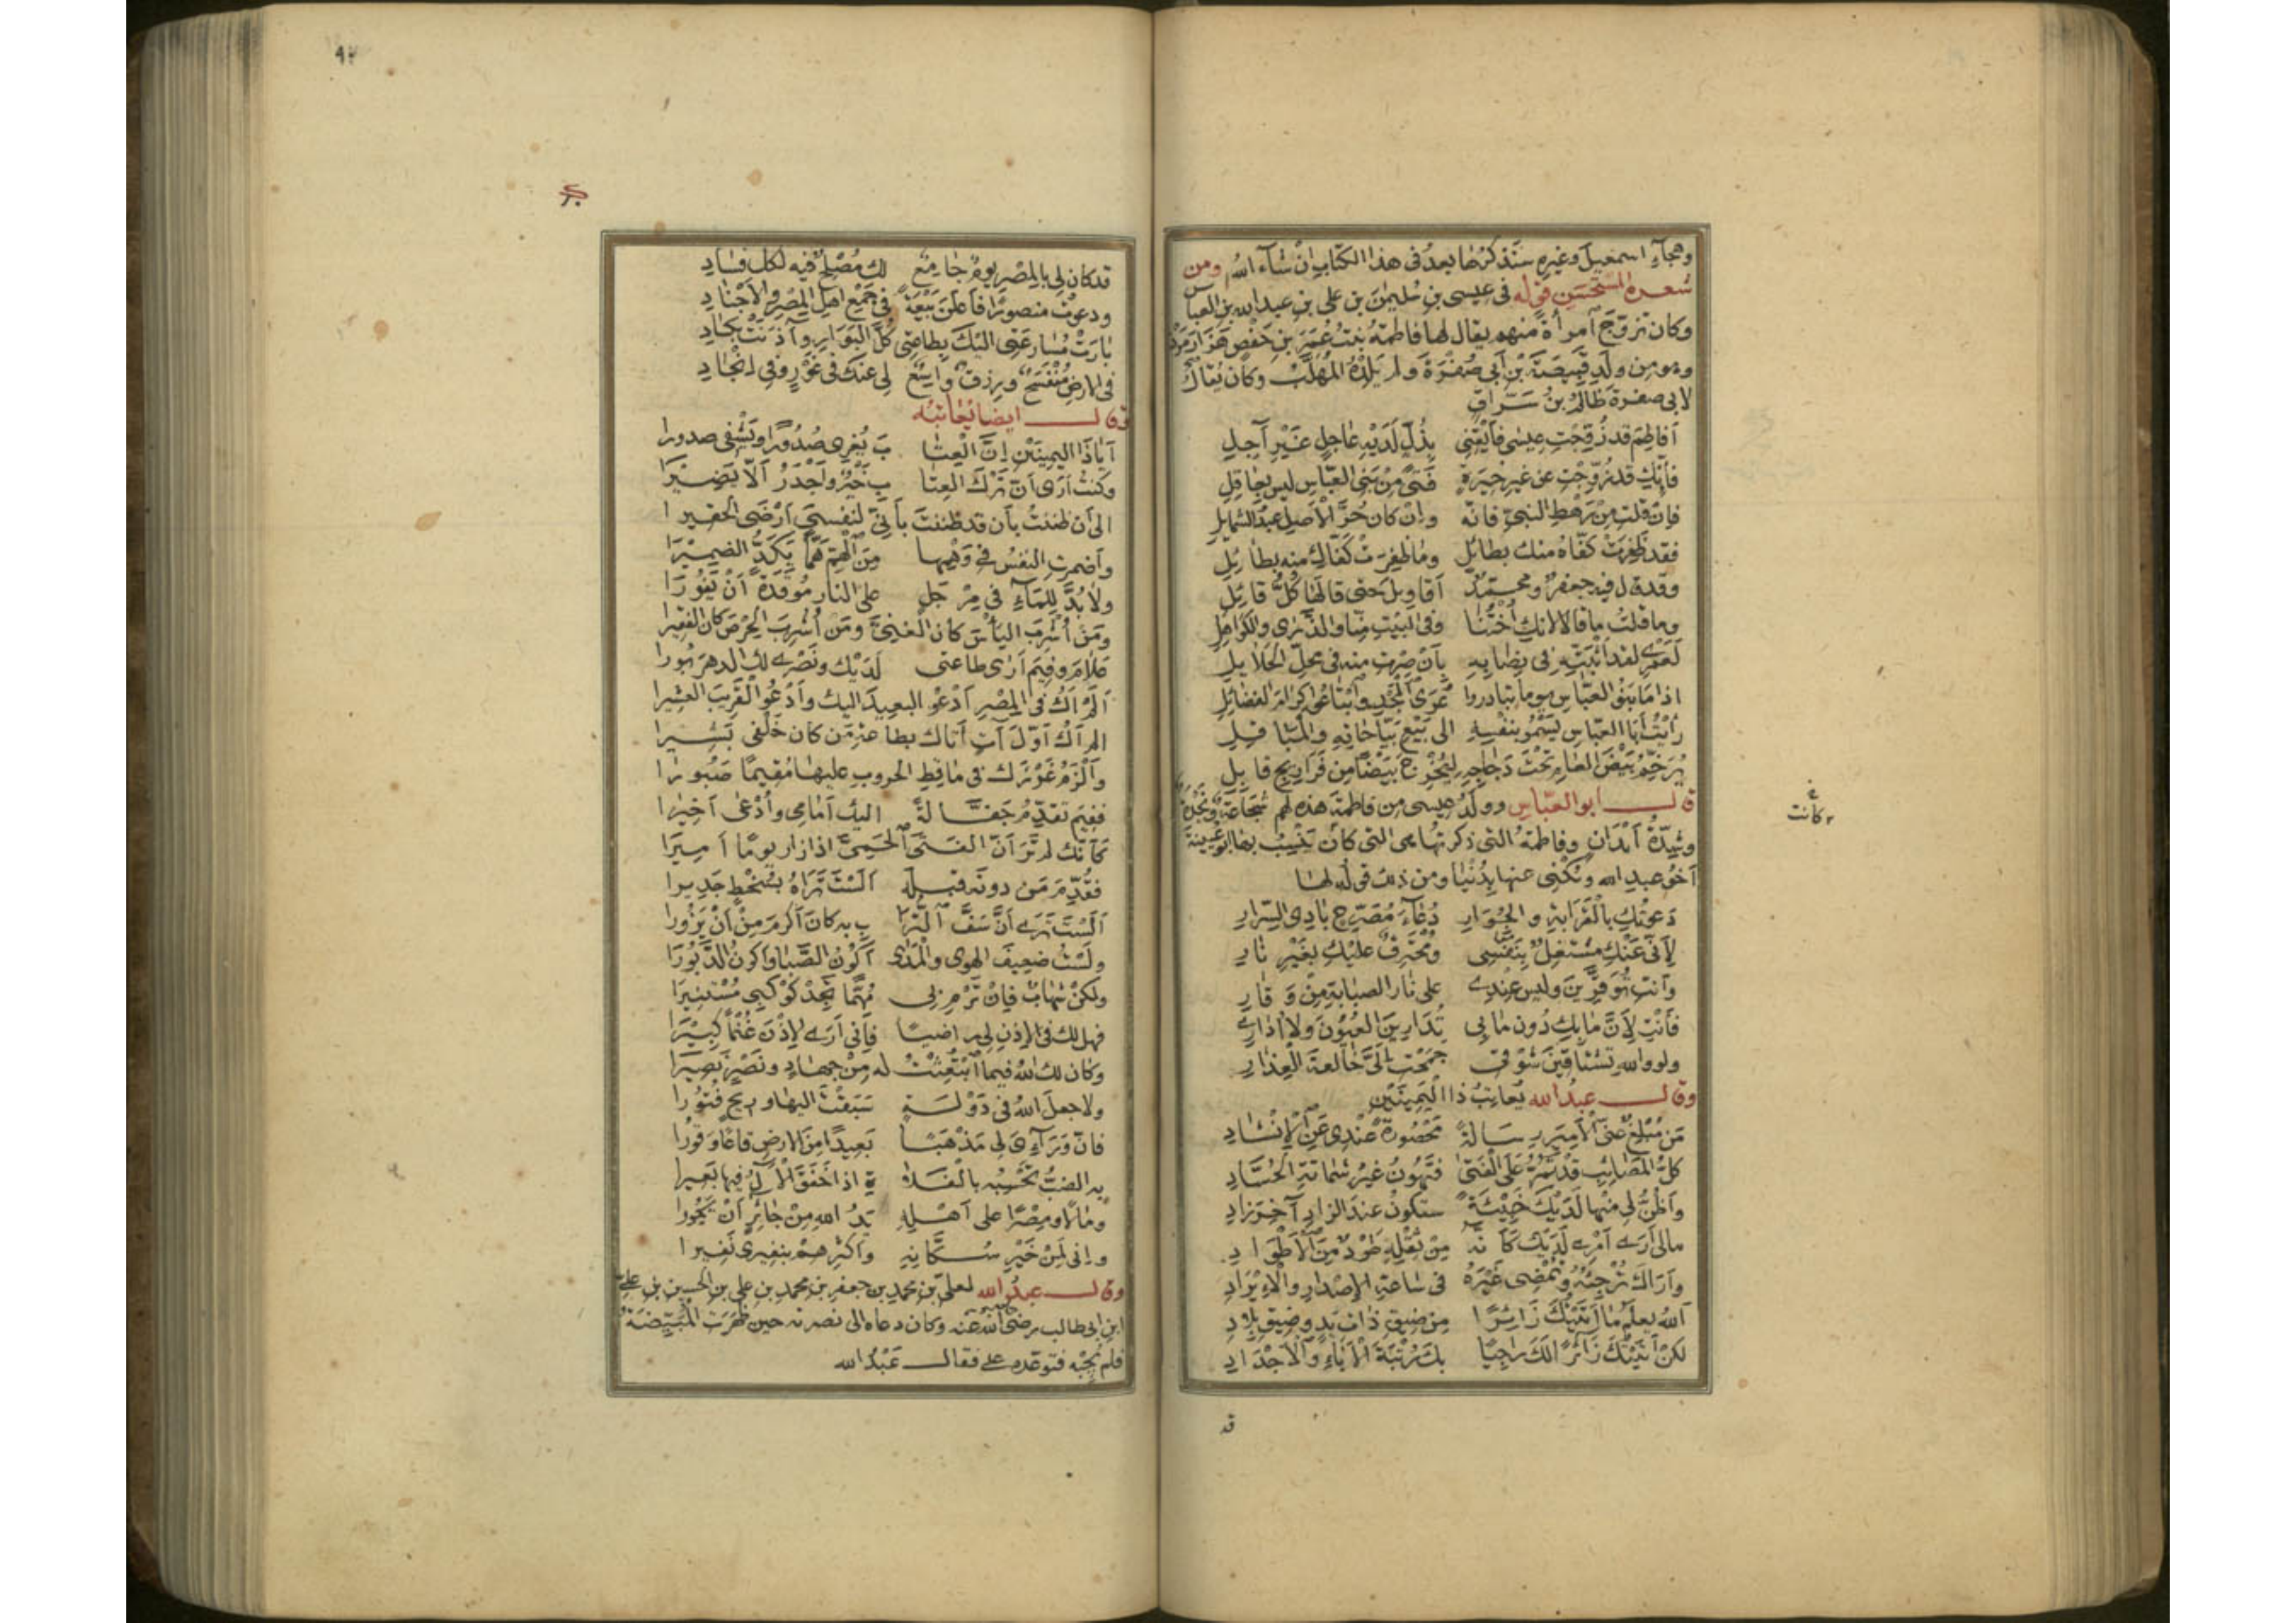 وهجاء اسمعيل وغيره سنذكرها بعد فى هذا الكتاب ان شاء الله ومن
شعره المستحسن قوله فى عيسى بن سليمن بن على بن عبد الله بن العباس
وكان تزوج آمرأة منهم يقال لها فاطمة بنت عمر بن حفص هزارمرد
وهو من ولد قبيصة بن أبى صفرة ولم يلده المهلب وكان يقال
لابى صفرة ظالم بن سراق
أفاطم قد زوجت عيسى فأيقنى بذل لديه عاجل غير آجل
فإنك قد زوجت عن غير خبرة فتى من بنى العباس ليس بعاقل
فان قلت من رهط النبى فانه وان كان حر الاصل عبد الشمايل
فقد ظفرت كفاه منك بطائل وما ظفرت كفاك منه بطائل
وقد قال فيه جعفر ومحمد أقاويل حتى قالها كل قائل
وما قلت ما قالا لانك اختنا وفى البيت منا والذرى والكواهل
لعمرى لقد أثبته فى نصابه بان صرت منه فى محل الحلايل
اذا ما بنو العباس يوما تبادروا عرى المجد وابتاعوا كرام الفضائل
رأيت أبا العباس يسمو بنفسه الى بيع بياحاته والمباقل
يرخم بيض العام تحت دجاجه ليخرج بيضا من فراريج قابل
قال ابو العباس وولد عيسى من فاطمة هذه لهم شجاعة ونجدة
وشدة أبدان وفاطمة التى ذكرتها هى التى كان ينسب بها ابو عيينة
أخو عبد الله ويكنى عنها بدنيا ومن ذلك قوله لها
دعوتك بالقرابة والجوار دعاء مصرح بادى السرار
لأنى عنك مشتغل بنفسى ومحترق عليك بغير نار
وأنت توقرين وليس عندى على نار الصبابة من وقار
فأنت لأن ما بك دون ما بى تدارين العيون ولا أدارى
ولو والله تشتاقين شوقى جمحت الى خالعة العذار
وقال عبد الله يعاتب ذا اليمينين
من مبلغ عنى الأمير رسالة محصورة عندى عن الإنشاد
كل المصائب قد تمر على الفتى فتهون غير شماتة الحساد
وأظن لى منها لديك خبيئة ستكون عند الزاد آخر زاد
مالى أرى أمرى لديك كأنه من ثقله طود من الأطواد
وأراك ترجئه وتمضى غيره فى ساعة الإصدار والايراد
الله يعلم ما أتيتك زائرا من ضيق ذات يد وضيق بلاد
لكن أتيتك زائرا لك راجيا بك رتبة الآباء والأجداد
قد
وكانت
٩٢
قد كان لى بالمصر يوم جامع لك مصلح فيه لكل فساد
ودعوت منصورا فأعلن بيعة فى جمع اهل المصر والاجناد
بارت مسارعتى اليك بطاعتى كل البوار وآذنت بكساد
فى الارض منفسح ورزق واسع لى عنك فى غورى وفى انجادى
وقال ايضا يعاتبه
أيا ذا اليمينين إن العتا ب يغرى صدورا ويشفى صدورا
وكنت أرى أن ترك العتا ب خير وأجدر ألا يضيرا
الى أن ظننت بأن قد ظننت بأنى لنفسى أرضى الحقيرا
وأضمرت النفس فى وهمها من الهم هما يكد الضميرا
ولا بد للماء فى مرجل على النار موقدة أن يفورا
ومن أشرب اليأس كان الغنى ومن أشرب الحرص كان الفقيرا
علام وفيم أرى طاعتى لديك ونصرى لك الدهر بورا
ألم أك فى المصر أدعو البعيد اليك وأدعو القريب العشيرا
الم أك أول آت أتاك بطاعة من كان خلفى بشيرا
وألزم غرزك فى ماقط الحروب عليها مقيما صبورا
ففيم تقدم جفالة اليك أمامى وأدعى أخيرا
كأنك لم تر أن الفتى الحمى اذا زار يوما أميرا
فقدم من دونه قبله ألست تراه بسخط جديرا
ألست ترى أن سف الترا ب به كان أكرم من أن يزورا
ولست ضعيف الهوى والمدى أكون الصبا واكون الدبورا
ولكن شهاب فإن ترم بى مهما تجد كوكبى مستنيرا
فهل لك فى الإذن لى راضيا فإنى أرى لإذن غنما كبيرا
وكان لك الله فيما ابتعثت له من جهاد ونصر نصيرا
ولا جعل الله فى دولة سبقت اليها وريح فتورا
فان ورائى لى مذهبا بعيدا من الارض قاعا وقورا
به الضب تحسبه بالفلا ة اذا خفق الآل فيها بعيرا
ومالا ومصرا على أهله يد الله من جائر أن يجورا
وانى لمن خير سكانه وأكثرهم بنفيرى نفيرا
وقال عبد الله لعلى بن محمد بن جعفر بن محمد بن على بن الحسين بن على
ابن ابى طالب رضى الله عنه وكان دعاه الى نصرته حين ظهرت المبيضة
فلم يجبه فتوعده على فقال عبد الله